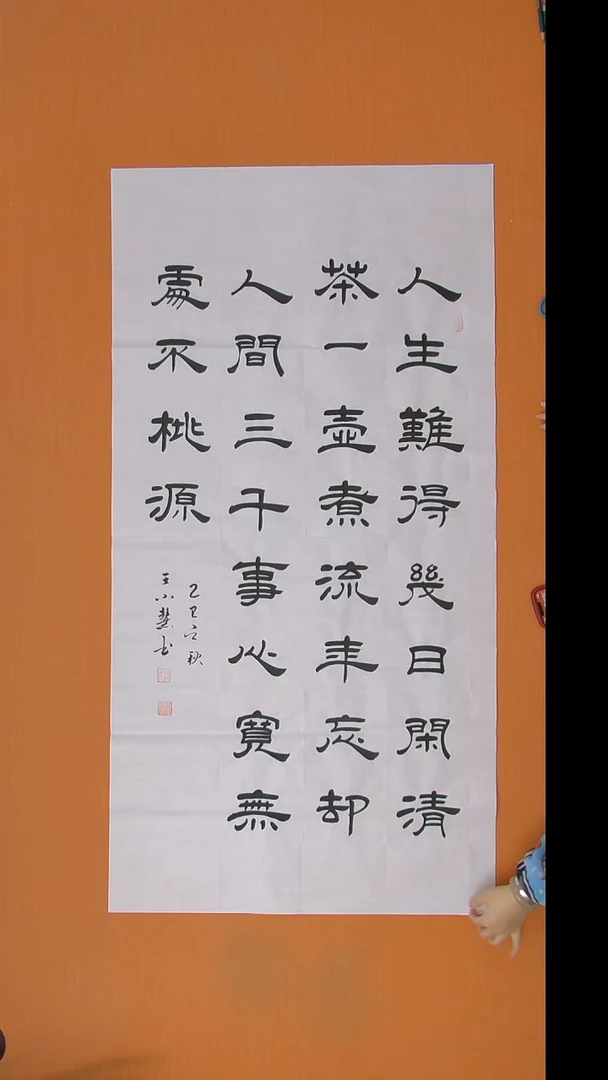 人生難得幾日閑清
茶一壺煮流年忘却
人間三千事心寬無
處不桃源
乙巳立秋
王小慧书